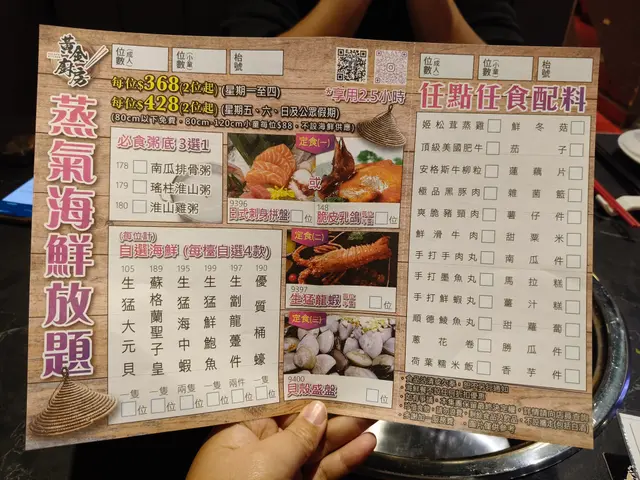 黃金廚房
位數
(成人)
位數
(小童)
枱號
每位$368(2位起) (星期一至四)
每位$428(2位起) (星期五、六、日及公眾假期)
(80cm以下免費，80cm-120cm小童每位$88，不設海鮮供應)
*享用2.5小時
蒸氣海鮮放題
必食粥底 3選1
178 南瓜排骨粥
179 瑤柱淮山粥
180 淮山雞粥
定食(一)
9396
日式刺身拼盤
位
或
148
脆皮乳鴿
位
(每位計)
自選海鮮 (每檯自選4款)
105
生猛大元貝
一隻
位
189
蘇格蘭聖子皇
一隻
位
195
生猛海中蝦
兩隻
位
199
生猛鮮鮑魚
一隻
位
197
生劏龍躉件
兩件
位
190
優質桶蠔
一隻
位
定食(二)
9397
生猛龍蝦
位
定食(三)
9400
貝殼盛盤
位
位數
(成人)
位數
(小童)
枱號
任點任食配料
姬松茸蒸雞
頂級美國肥牛
安格斯牛柳粒
極品黑豚肉
爽脆豬頸肉
鮮滑牛肉
手打手米肉丸
手打墨魚丸
手打鮮蝦丸
順德鯪魚丸
蔥花卷
荷葉糯米飯
鮮冬菇
茄子
蓮藕片
雜菌籃
薯仔件
甜粟米
南瓜件
馬拉糕
薑汁糕
甜蘿蔔
勝瓜件
香芋件